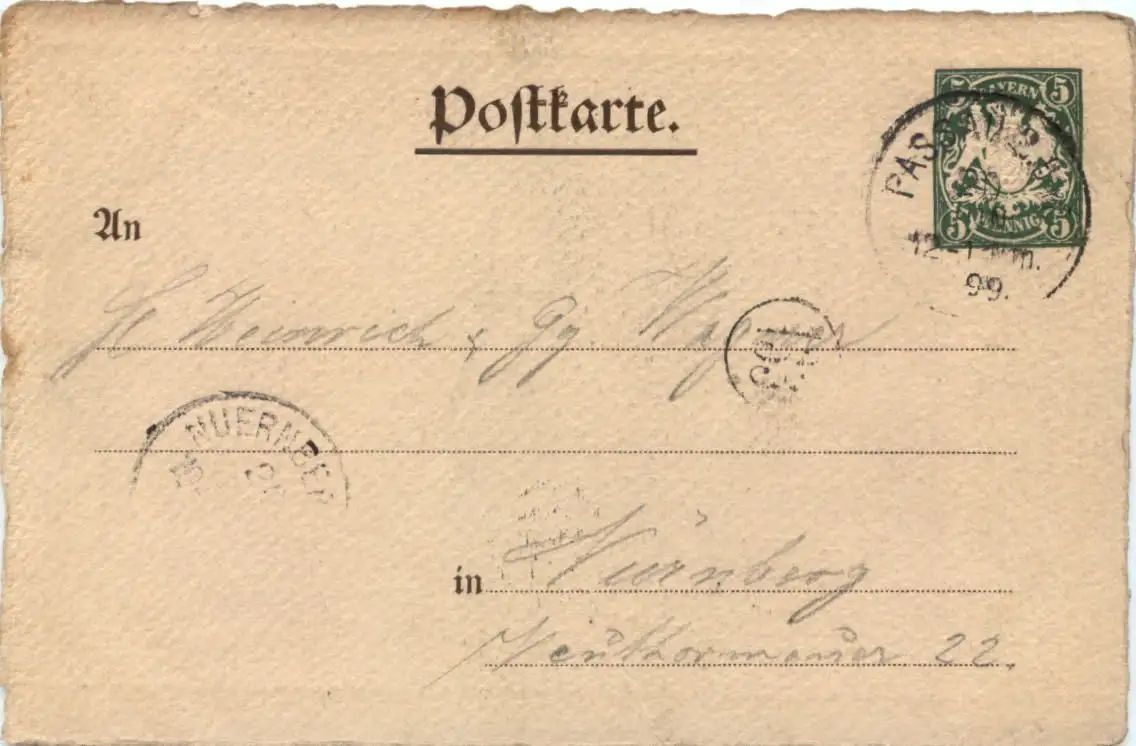 Postkarte.
5 BAYERN 5
5 PFENNIG 5
PASSAU
12-1 Nm.
99.
An
H Heinrich & Gg. Wagner
NUERNBE
in Nürnberg
Neuthormauer 22.